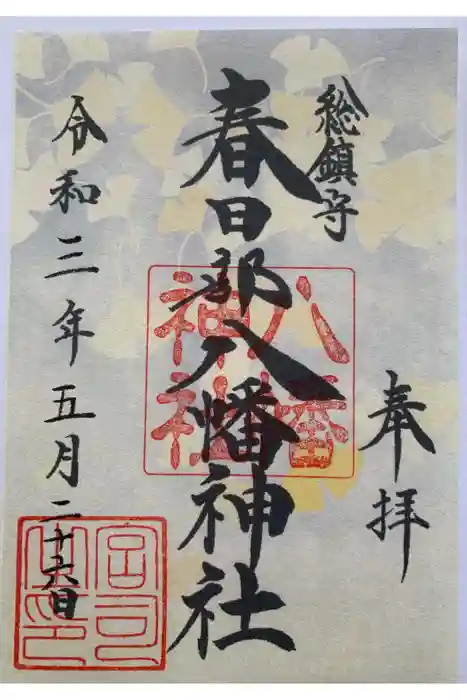 奉拝
総鎮守
春日部八幡神社
八幡
神社
令和三年五月二十六日
宮司
之印